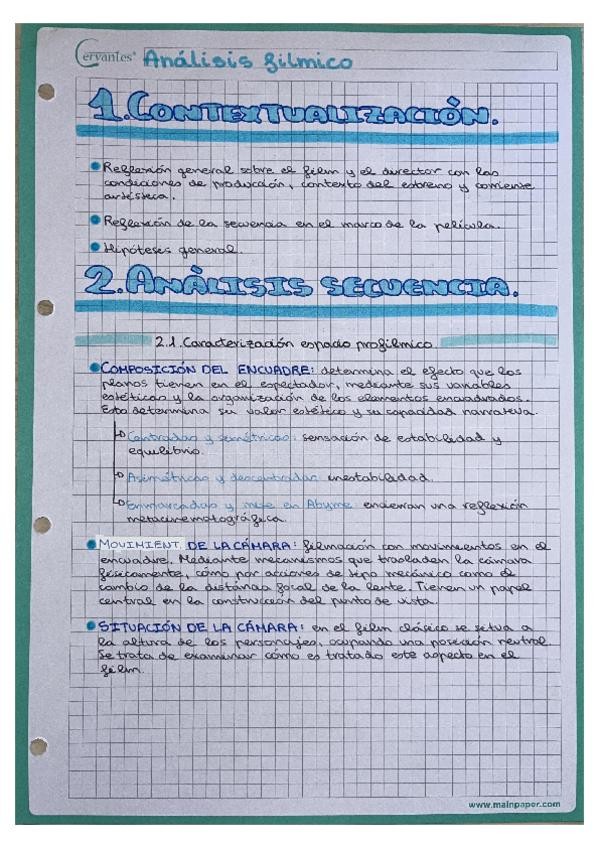 Cervantes® Análisis fílmico
1. CONTEXTUALIZACIÓN.
Reflexión general sobre el film y el director con las
condiciones de producción, contexto del estreno y corriente
artística.
Reflexión de la secuencia en el marco de la película.
Hipótesis general.
2. ANÁLISIS SECUENCIA.
2.1. Caracterización espacio profílmico.
COMPOSICIÓN DEL ENCUADRE: determina el efecto que los
planos tienen en el espectador, mediante sus variables
estéticas y la organización de los elementos encuadrados.
Esto determina su valor estético y su capacidad narrativa.
Centradas y simétricas: sensación de estabilidad y
equilibrio.
Asimétricas y descentradas: inestabilidad.
Enmarcadas y mise en Abyme: encierran una reflexión
metacinematográfica.
MOVIMIENT. DE LA CÁMARA: filmación con movimientos en el
encuadre. Mediante mecanismos que trasladen la cámara
físicamente, cómo por acciones de tipo mecánico como el
cambio de la distancia focal de la lente. Tienen un papel
central en la construcción del punto de vista.
SITUACIÓN DE LA CÁMARA: en el film clásico se situa a
la altura de los personajes, ocupando una posición neutral.
Se trata de examinar cómo es tratado este aspecto en el
film.
www.mainpaper.com